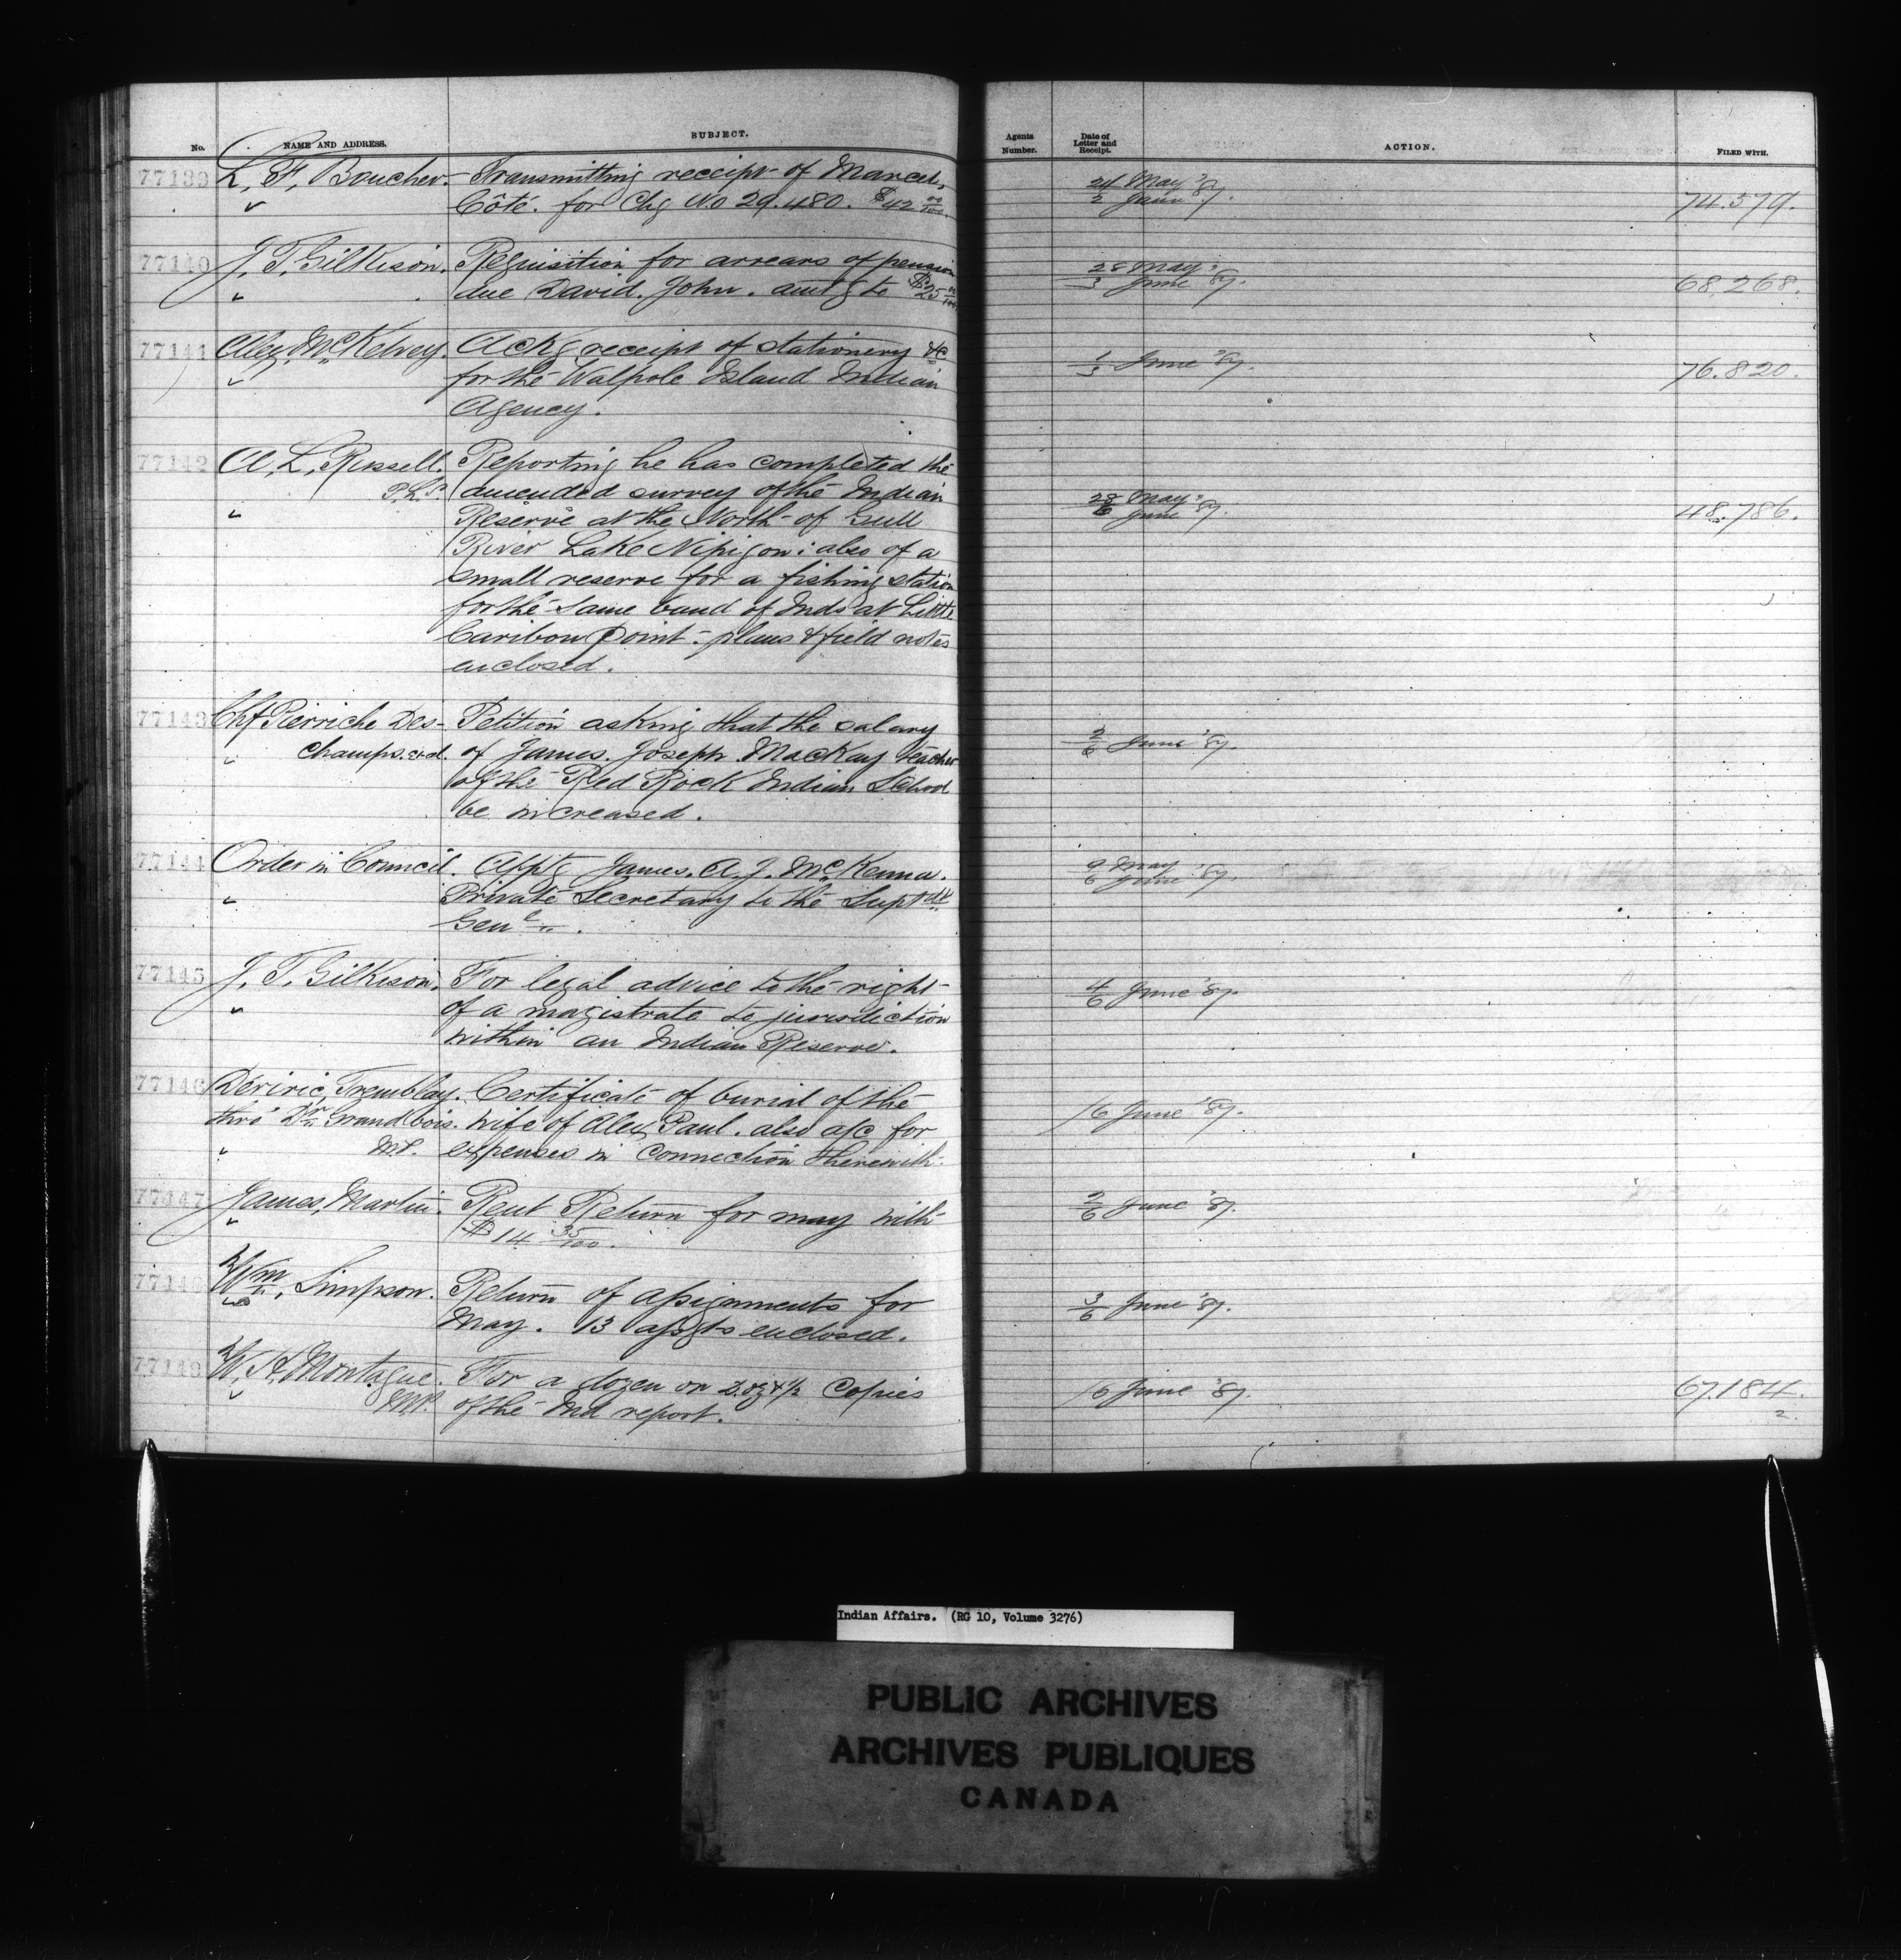 No. NAME AND ADDRESS. SUBJECT. Agents Number. Date of Letter and Receipt. ACTION. FILED WITH.
77139 L. F. Boucher. Transmitting receipt of Marcel, 24 May '87.
" Côté. for Chq No 29.480. $42 00/100. 2 June 74.579.
77140 J. T. Gilkison. Requisition for arrears of pension 28 May '87.
" due David. John. amtg to $25 00/100 3 June 68,268.
77141 Alex, McKelvey. Ackg receipt of stationery &c 1/3 June '87.
" for the Walpole Island Indian 76.820.
Agency.
77142 A. L. Russell. Reporting he has completed the
P.L.S. amended survey of the Indian 28 May '87.
" Reserve at the North of Gull 6 June 48,786.
River Lake Nipigon: also of a
small reserve for a fishing station
for the same band of Inds at Little
Caribou Point - plans & field notes
enclosed.
77143 Chf Pierriche Des- Petition asking that the salary
" champs. &d. of James. Joseph MacKay teacher 2/6 June '87.
of the Red Rock Indian School
be increased.
77144 Order in Council. Apptg James. A. J. McKenna. 9 May
" Private Secretary to the Supt 6 June '87.
Genl ".
77145 J. T. Gilkison. For legal advice to the right 4/6 June '87.
" of a magistrate to jurisdiction
within an Indian Reserve.
77146 Tremblay. Certificate of burial of the
thro' Dr Grandbois. wife of Alex, Paul. also a/c for /6 June '87.
" M.P. expenses in connection therewith.
77147 James, Martin. Rent Return for may with 2/6 June '87.
" $14 35/100.
77148 Wm, Simpson. Return of assignments for 3/6 June '87.
" May. 13 assgts enclosed.
77149 W. H. Montague. For a dozen or Doz & 1/2 Copies /6 June '87. 67.184.
" M.P. of the Ind report. 2.
Indian Affairs. (RG 10, Volume 3276)
PUBLIC ARCHIVES
ARCHIVES PUBLIQUES
CANADA